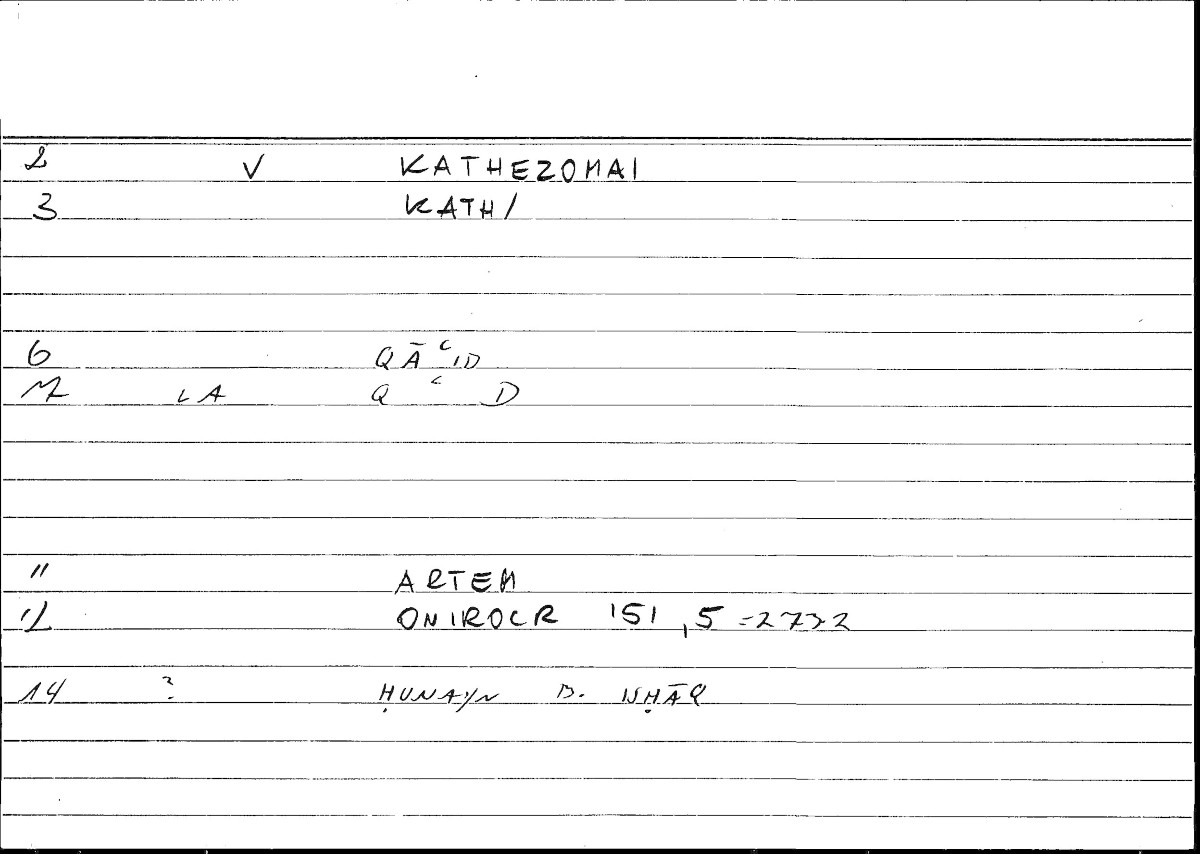 2 V KATHEZOMAI
3 KATH/
6 QĀʿID
7 LA Q ʿ D
11 ARTEM
12 ONIROCR 151,5 = 273,2
14 ? ḤUNAYN B. ISḤĀQ